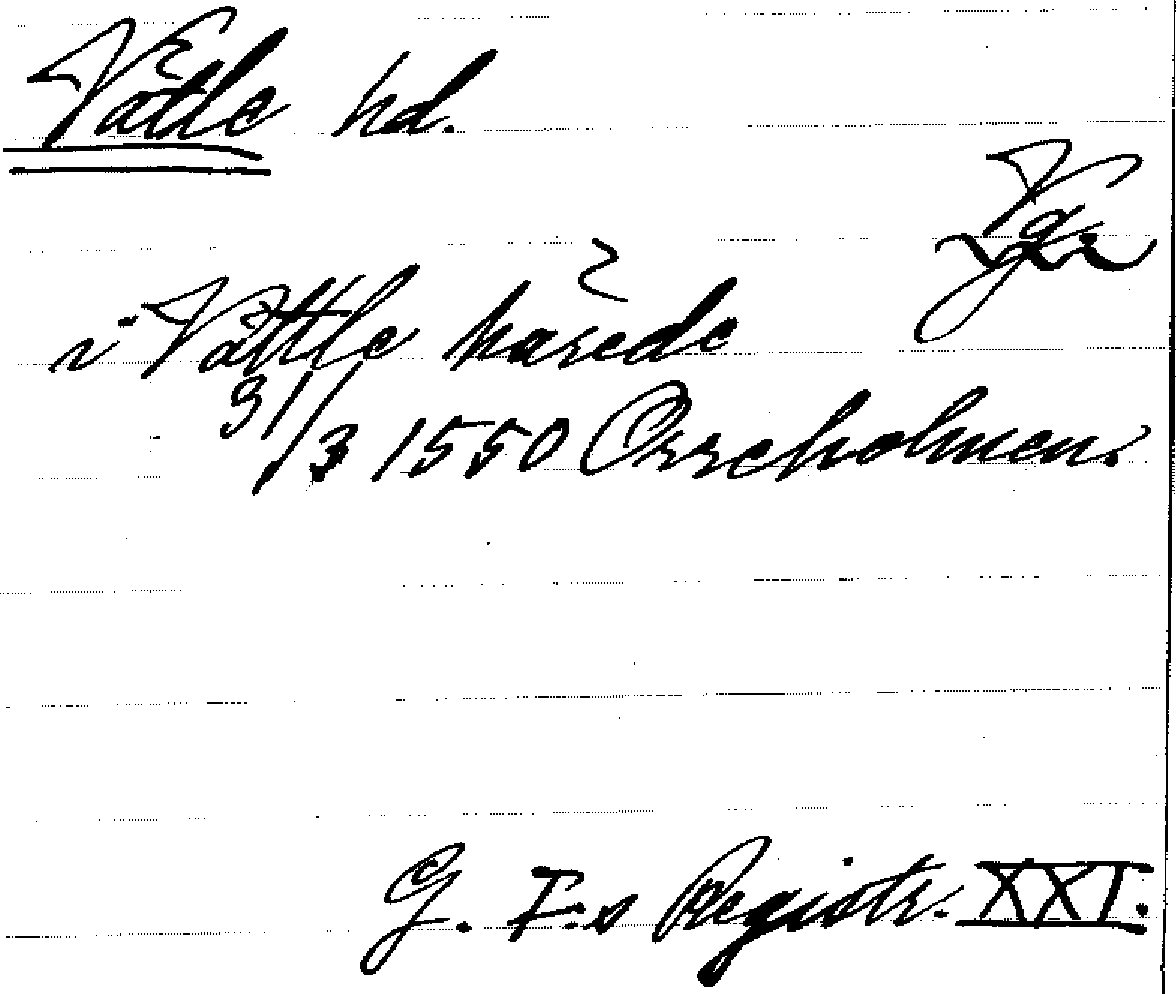 Vätle hd.
Vg
i Vättle härede
31/3 1550 Orreholmen.
G. I:s Registr. XXI.